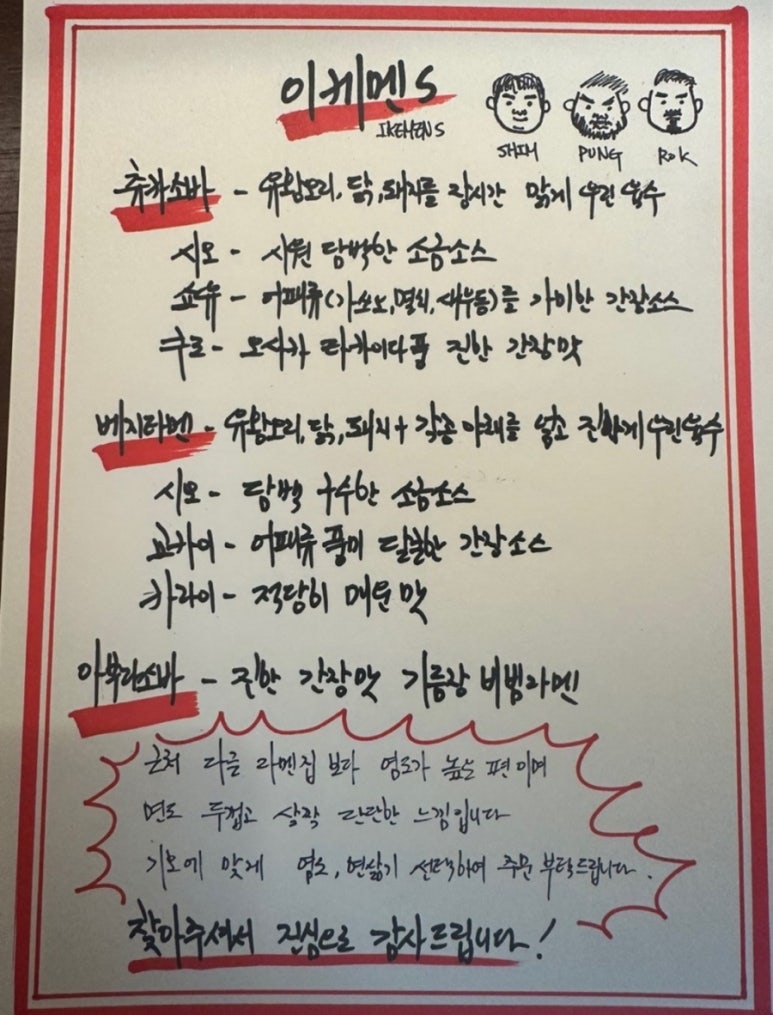 이케멘S
IKEMENS
SHIM PUNG ROK
츄카소바 - 유황오리, 닭, 돼지를 장시간 맑게 우린 육수
시오 - 시원 담백한 소금소스
쇼유 - 어패류(가쓰오,멸치,새우등)를 가미한 간장소스
쿠로 - 오사카 타카이다풍 진한 간장맛
베지라멘 - 유황오리, 닭, 돼지 + 각종 야채를 넣고 진하게 우린육수
시오 - 담백 구수한 소금소스
교카이 - 어패류 풍미 달큰한 간장소스
카라이 - 적당히 매운맛
아부라소바 - 진한 간장맛 기름장 비빔라멘
근처 다른 라멘집 보다 염도가 높은 편이며
면도 두껍고 살짝 단단한 느낌입니다
기호에 맞게 염도, 면삶기 선택하여 주문 부탁드립니다.
찾아주셔서 진심으로 감사드립니다!